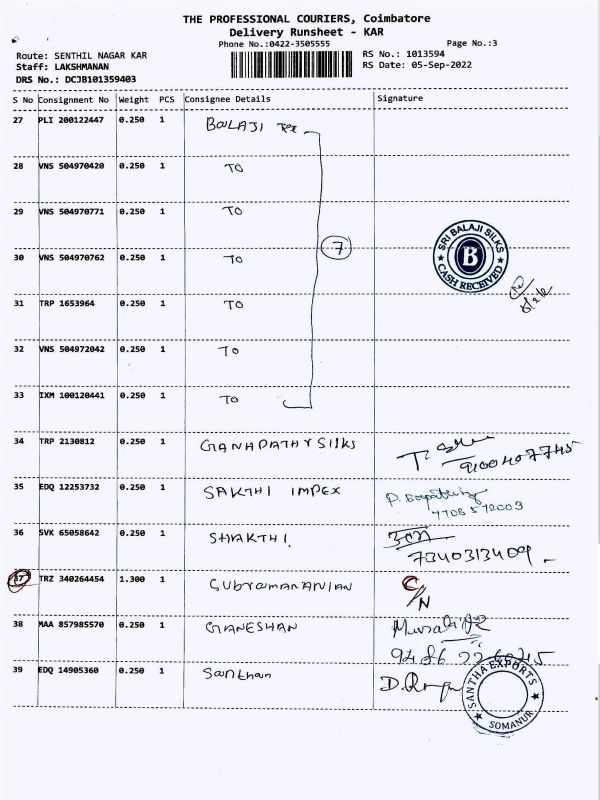 THE PROFESSIONAL COURIERS, Coimbatore
Delivery Runsheet - KAR
Phone No.:0422-3505555
Page No.:3
Route: SENTHIL NAGAR KAR
Staff: LAKSHMANAN
DRS No.: DCJB101359403
RS No.: 1013594
RS Date: 05-Sep-2022
S No Consignment No Weight PCS Consignee Details Signature
27 PLI 200122447 0.250 1 BALAJI Tex
28 VNS 504970420 0.250 1 TO
29 VNS 504970771 0.250 1 TO
7
30 VNS 504970762 0.250 1 TO
SRI BALAJI SILKS
B
CASH RECEIVED
31 TRP 1653964 0.250 1 TO
32 VNS 504972042 0.250 1 TO
33 IXM 100120441 0.250 1 TO
34 TRP 2130812 0.250 1 GANAPATHY SILKS
9100407745
35 EDQ 12253732 0.250 1 SAKTHI IMPEX
36 SVK 65058642 0.250 1 SHAKTHI.
7340313409
37 TRZ 340264454 1.300 1 SUBramANANIAN C/N
38 MAA 857985570 0.250 1 GANESHAN
39 EDQ 14905360 0.250 1 Santhan
SANTHA EXPORTS
SOMANUR